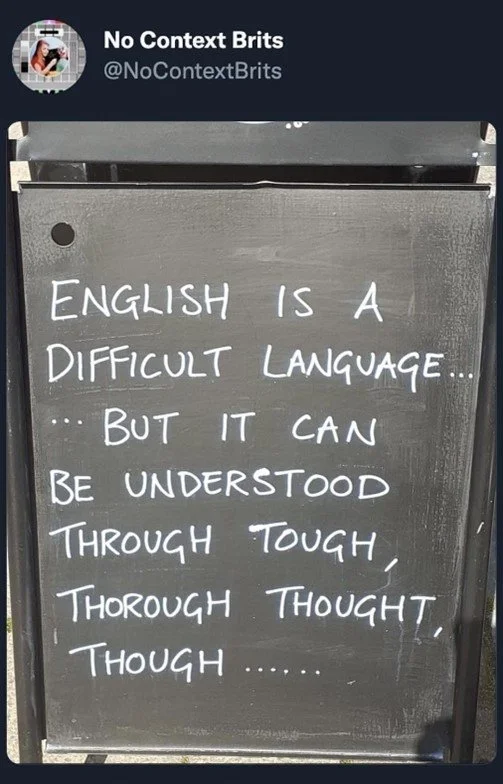 No Context Brits
@NoContextBrits
ENGLISH IS A
DIFFICULT LANGUAGE...
... BUT IT CAN
BE UNDERSTOOD
THROUGH TOUGH,
THOROUGH THOUGHT,
THOUGH ......